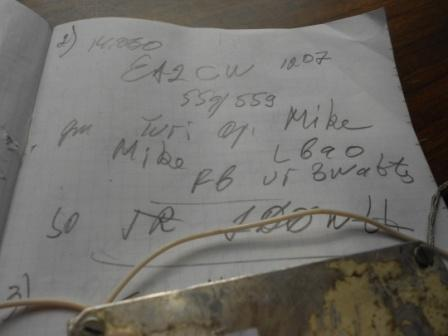 2) 14.060
EA2CW 1207
559/559
gm Turi op. Mike
Mike LBAO
FB ur 3watts
SO
3)